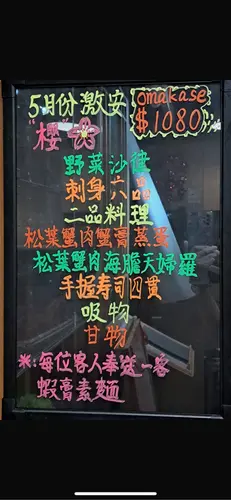 5月份激安
omakase
$1080
"櫻"
野菜沙律
刺身六品
二品料理
松葉蟹肉蟹膏蒸蛋
松葉蟹肉海膽天婦羅
手握寿司四貫
吸物
甘物
※:每位客人奉送一客
蝦膏素麵